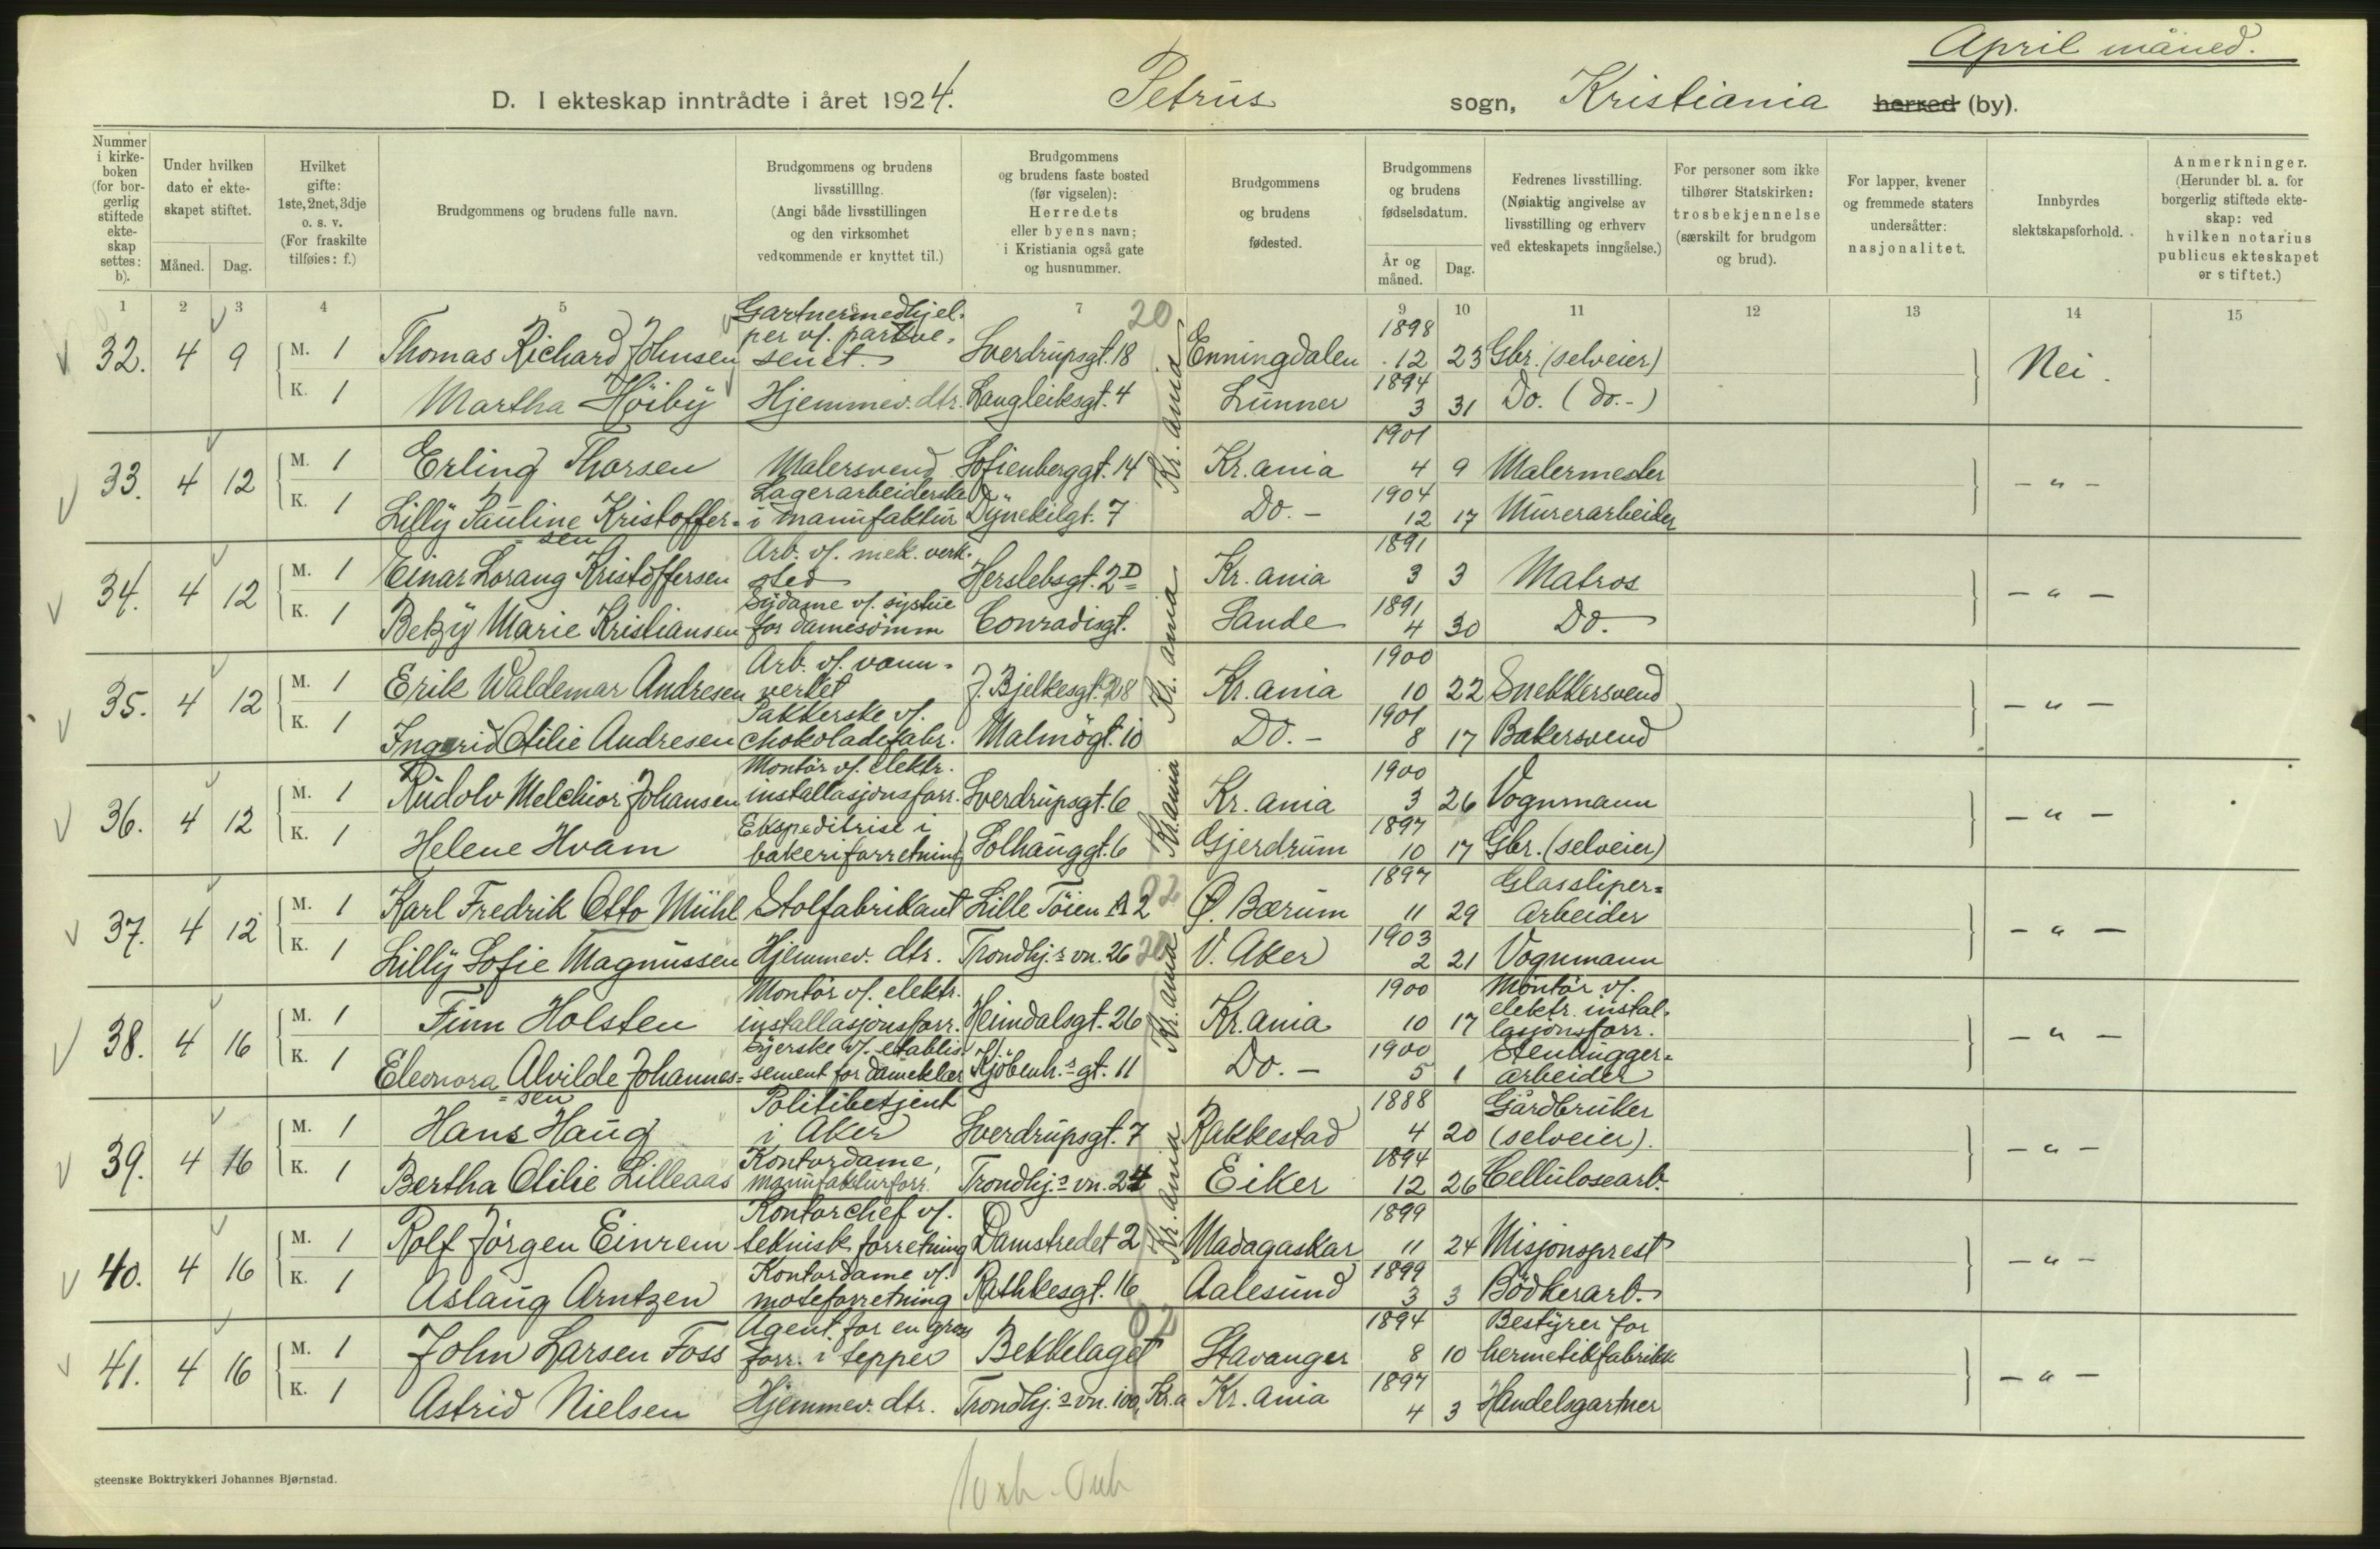 April måned.
D. I ekteskap inntrådte i året 1924. Petrus sogn, Kristiania herred (by).
Nummer i kirke-boken (for bor-gerlig stiftede ekte-skap settes: b).
Under hvilken dato er ekte-skapet stiftet.
Måned. Dag.
Hvilket gifte: 1ste, 2net, 3dje o. s. v. (For fraskilte tilføies: f.)
Brudgommens og brudens fulle navn.
Brudgommens og brudens livsstilling. (Angi både livsstillingen og den virksomhet vedkommende er knyttet til.)
Brudgommens og brudens faste bosted (før vigselen): Herredets eller byens navn; i Kristiania også gate og husnummer.
Brudgommens og brudens fødested.
Brudgommens og brudens fødselsdatum.
År og måned. Dag.
Fedrenes livsstilling. (Nøiaktig angivelse av livsstilling og erhverv ved ekteskapets inngåelse.)
For personer som ikke tilhører Statskirken: trosbekjennelse (særskilt for brudgom og brud).
For lapper, kvener og fremmede staters undersåtter: nasjonalitet.
Innbyrdes slektskapsforhold.
Anmerkninger. (Herunder bl. a. for borgerlig stiftede ekte-skap: ved hvilken notarius publicus ekteskapet er stiftet.)
1 2 3 4 5 7 9 10 11 12 13 14 15
20
32. 4 9 M. 1 Thomas Richard Johnsen Gartnermedhjel-per v/. parkve-senet. Sverdrupsgt. 18 Kr.ania Enningdalen 1898 12 23 Gbr. (selveier) Nei.
K. 1 Martha Höiby Hjemmev. dtr. Langleiksgt. 4 Lunner 1894 3 31 Do. (do.-)
33. 4 12 M. 1 Erling Thorsen Malersvend Sofienberggt. 14 Kr.ania 1901 4 9 Malermester - " -
K. 1 Lilly Pauline Kristoffer-sen Lagerarbeiderske i manufaktur Dynekilgt. 7 Do. - 1904 12 17 Murerarbeider
34. 4 12 M. 1 Einar Lorang Kristoffersen Arb. v/. mek. verk-sted Herslebsgt. 2D Kr.ania Kr.ania 1891 3 3 Matros - " -
K. 1 Betzy Marie Kristiansen Sydame v/. systue for damesömm Conradisgt. Sande 1891 4 30 Do.
35. 4 12 M. 1 Erik Waldemar Andresen Arb. v/. vann-verket J. Bjelkesgt. 28 Kr.ania 1900 10 22 Snekkersvend - " -
K. 1 Ingrid Otilie Andresen Pakkerske v/. chokoladefabr. Malmögt. 10 Do. - 1901 8 17 Bakersvend
36. 4 12 M. 1 Rudolv Melchior Johansen Montör v/. elektr. installasjonsforr. Sverdrupsgt. 6 Kr.ania Kr.ania 1900 3 26 Vognmann - " -
K. 1 Helene Hvam Ekspeditrise i bakeriforretning Solhauggt. 6 Gjerdrum 1897 10 17 Gbr. (selveier)
37. 4 12 M. 1 Karl Fredrik Otto Mühl Stolfabrikant Lille Töien A 2 02 Ø. Bærum 1897 11 29 Glassliper-arbeider - " -
K. 1 Lilly Sofie Magnussen Hjemmev. dtr. Trondhj.s vn. 26 20 Kr.ania V. Aker 1903 2 21 Vognmann
38. 4 16 M. 1 Finn Holsten Montör v/. elektr. installasjonsforr. Heimdalsgt. 26 Kr.ania 1900 10 17 Montör v/. elektr. instal-lasjonsforr. - " -
K. 1 Eleonora Alvilde Johannes-sen Syerske v/. etablis-sement for dameklær Kjöbenh.s gt. 11 Do. - 1900 5 1 Stenhugger-arbeider
39. 4 16 M. 1 Hans Haug Politibetjent i Aker Sverdrupsgt. 7 Kr.ania Rakkestad 1888 4 20 Gårdbruker (selveier). - " -
K. 1 Bertha Otilie Lilleaas Kontordame, manufakturforr. Trondhj.s vn. 24 Eiker 1894 12 26 Cellulosearb.
40. 4 16 M. 1 Rolf Jörgen Einrem Kontorchef v/. teknisk forretning Damstredet 2 Madagaskar 1899 11 24 Misjonsprest - " -
K. 1 Aslaug Arntzen Kontordame v/. moteforretning Rathkesgt. 16 Aalesund 1899 3 3 Bödkerarb.
41. 4 16 M. 1 John Larsen Foss Agent for en gros forr. i tepper Bekkelaget 02 Stavanger 1894 8 10 Bestyrer for hermetikfabrikk - " -
K. 1 Astrid Nielsen Hjemmev. dtr. Trondhj.s vn. 100, Kr.a Kr.ania 1897 4 3 Handelsgartner
gteenske Boktrykkeri Johannes Bjørnstad.